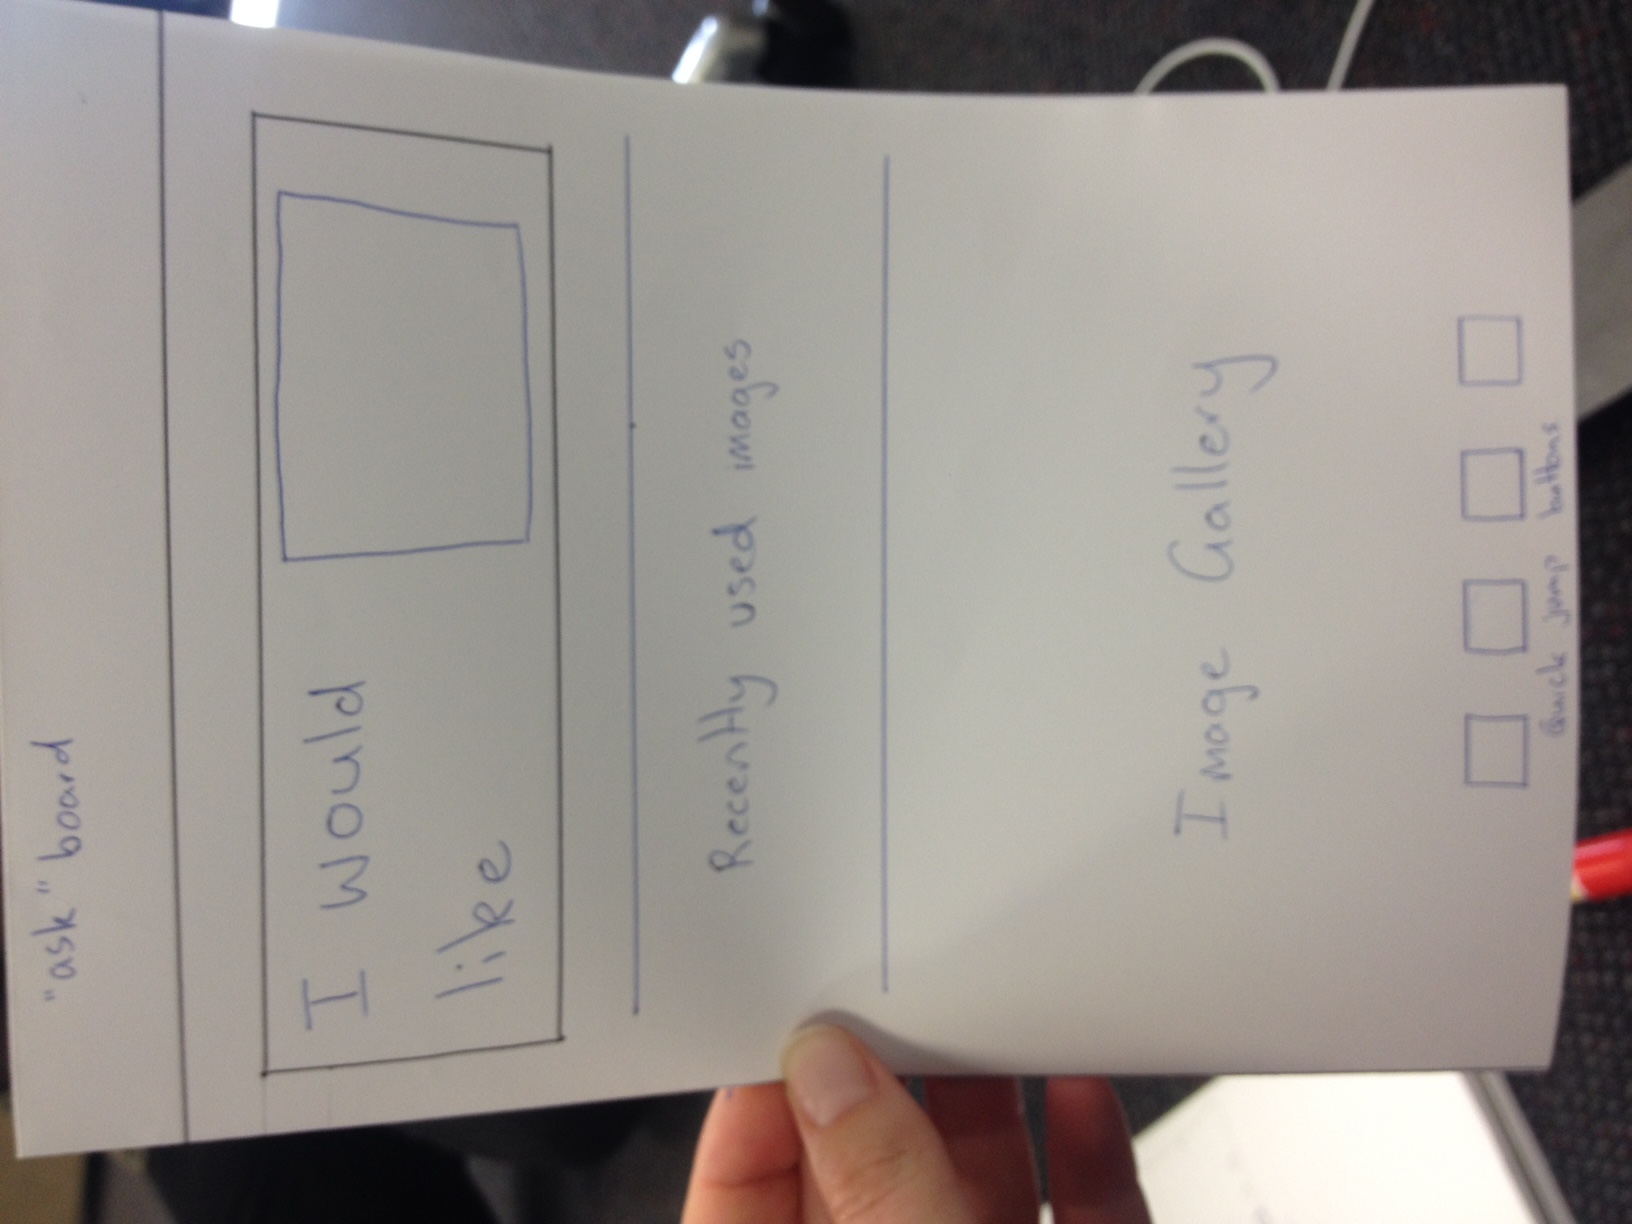 "ask" board
I would
like
Recently used images
Image Gallery
Quick jump buttons